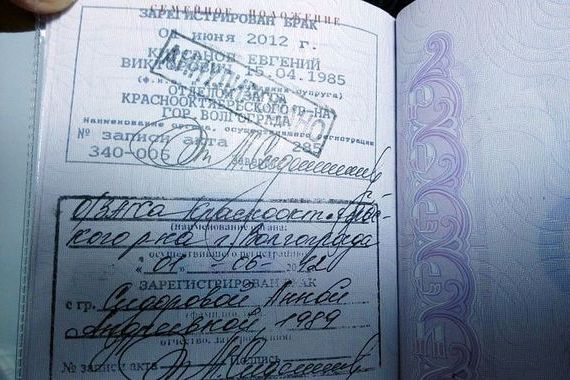 СЕМЕЙНОЕ ПОЛОЖЕНИЕ
ЗАРЕГИСТРИРОВАН БРАК
июня 2012 г.
ЕВГЕНИЙ
15.04.1985
ОТДЕЛОМ
КРАСНООКТЯБРЬСКОГО Р-НА
ГОР. ВОЛГОГРАДА
Наименование органа, осуществившего регистрацию
№ записи акта 285
340-006
ОЗАГСа Краснооктябрьс-
кого р-на г. Волгограда
(наименование органа,
осуществившего регистрацию)
"01" 06
ЗАРЕГИСТРИРОВАН БРАК
с гр. Сидоровой Анной
Андреевной, 1989
отчество, дата рождения)
№ записи акта Подпись